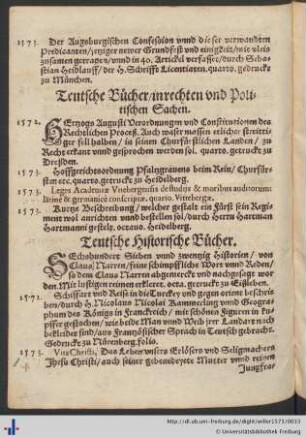 1573. Der Augspurgischen Confession vnnd dieser verwandten
Predicanten / jetziger newer Grundfest vnd einigkeit / mit vleis
zusamen getragen / vnnd in 40. Artickel verfasset / durch Seba-
stian Heidlauff / der H. Schrifft Licentiaten. quarto. gedruckt
zu München.
Teutsche Bücher / in rechten vnd Poli-
tischen Sachen.
1572. HErtzogs Augusti Verordnungen vnd Constitutionen des
Rechtlichen Proceß. Auch waser massen etlicher streitti-
ger fell halben / in seinen Churfürstlichen Landen / zu
Recht erkant vnnd gesprochen werden sol. quarto. getruckt zu
Dreßden.
1573. Hoffgerichtsordnung Pfaltzgrauens beim Rein / Churfür-
sten etc. quarto. getruckt zu Heidelberg.
1573. Leges Academiæ Vitebergensis de studijs & moribus auditorum:
latinè & germanicè conscriptæ. quarto. Vitebergæ.
1573. Kurtze Beschreibung / welcher gestalt ein Fürst sein Regi-
ment wol anrichten vnnd bestellen sol / durch Herrn Hartman
Hartmanni gestelt. octauo. Heidelberg.
Teutsche Historische Bücher.
SEchshundert Sieben vnnd zwentzig Historien / von
Claus Narren / feine schimpffliche Wort vnnd Reden /
so dem Claus Narren abgemerckt vnd nachgesagt wor-
den Mit lustigen reimen erkleret. octa. getruckt zu Eißleben.
1572. Schiffart vnd Reiß in die Turckey vnd gegen orient beschrie-
ben / durch H. Nicolaus Nicolai Kammerling vnnd Geogra-
phum des Königs in Franckreich / mit schönen Figuren in kupf-
fer gestochen / wie beide Man vnnd Weib jrer Landart nach
bekleidet sind / aus Frantzösischer Sprach in Teutsch gebracht.
Gedruckt zu Nürenberg. folio.
1573. Vita Christi, Das Leben vnsers Erlösers vnd Seligmachers
Jhesu Christi / auch seiner gebenedeyete Mutter vnnd reinen
Jungfraw
http://dl.ub.uni-freiburg.de/diglit/willer1573/0033
© Universitätsbibliothek Freiburg